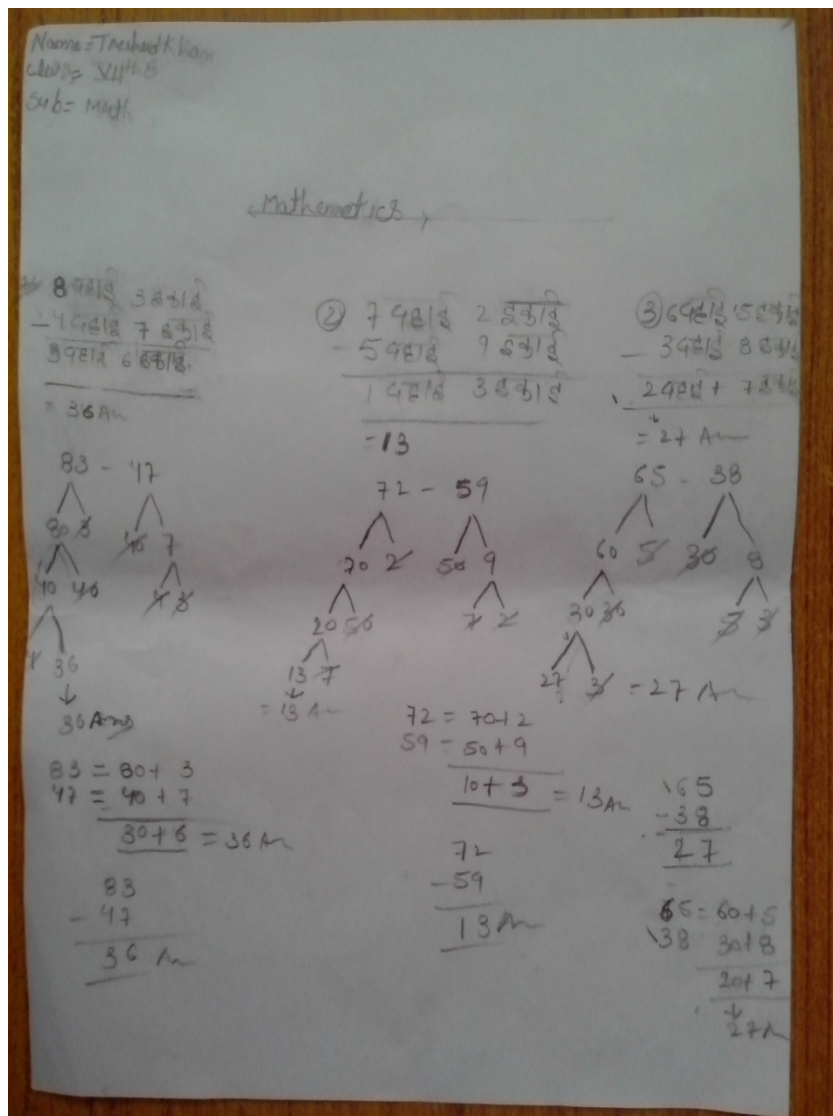 Name = Khan
Sub = Math
Mathematics
8 दहाई 3 इकाई
- 4 दहाई 7 इकाई
3 दहाई 6 इकाई
= 36 An
83 - 47
80 3
40 7
40 40
4 3
4 36
36 Ans
83 = 80 + 3
47 = 40 + 7
30 + 6 = 36 An
83
- 47
36 An
② 7 दहाई 2 इकाई
- 5 दहाई 9 इकाई
1 दहाई 3 इकाई
= 13
72 - 59
70 2
50 9
20 50
7 2
13 7
= 13 An
72 = 70+2
59 = 50+9
10+3 = 13 An
72
- 59
13 An
③ 6 दहाई 5 इकाई
- 3 दहाई 8 इकाई
2 दहाई + 7 इकाई
= 27 An
65 - 38
60 5
30 8
30 30
5 3
27 3 = 27 An
65
- 38
27
65 = 60+5
38 30+8
20+7
27 An